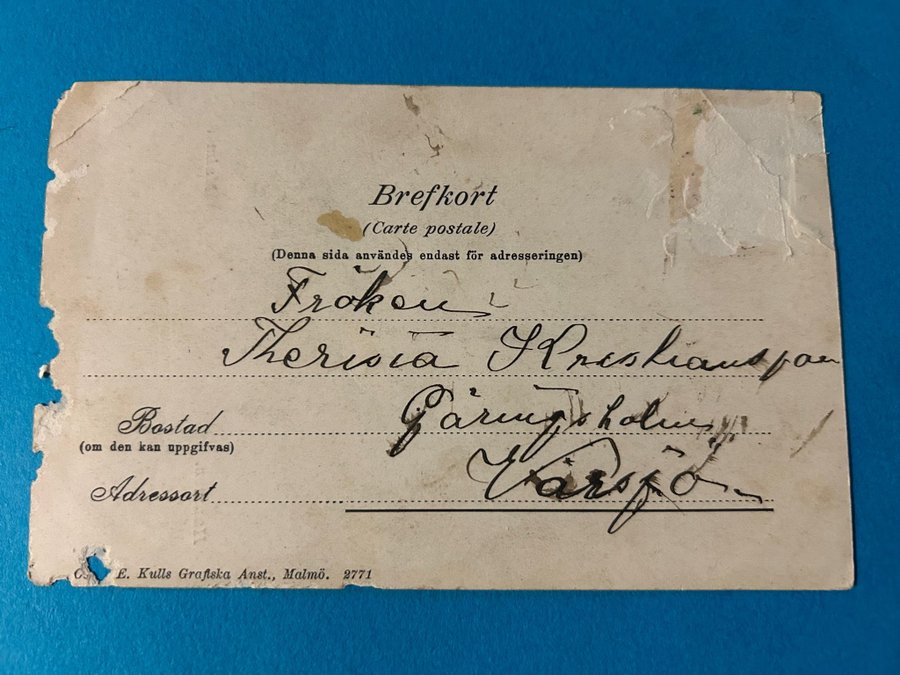 Brefkort
(Carte postale)
(Denna sida användes endast för adresseringen)
Fröken
Therisia Kristiansson
Gäringsholm
Bostad
(om den kan uppgifvas)
Värsjö
Adressort
E. Kulls Grafiska Anst., Malmö. 2771